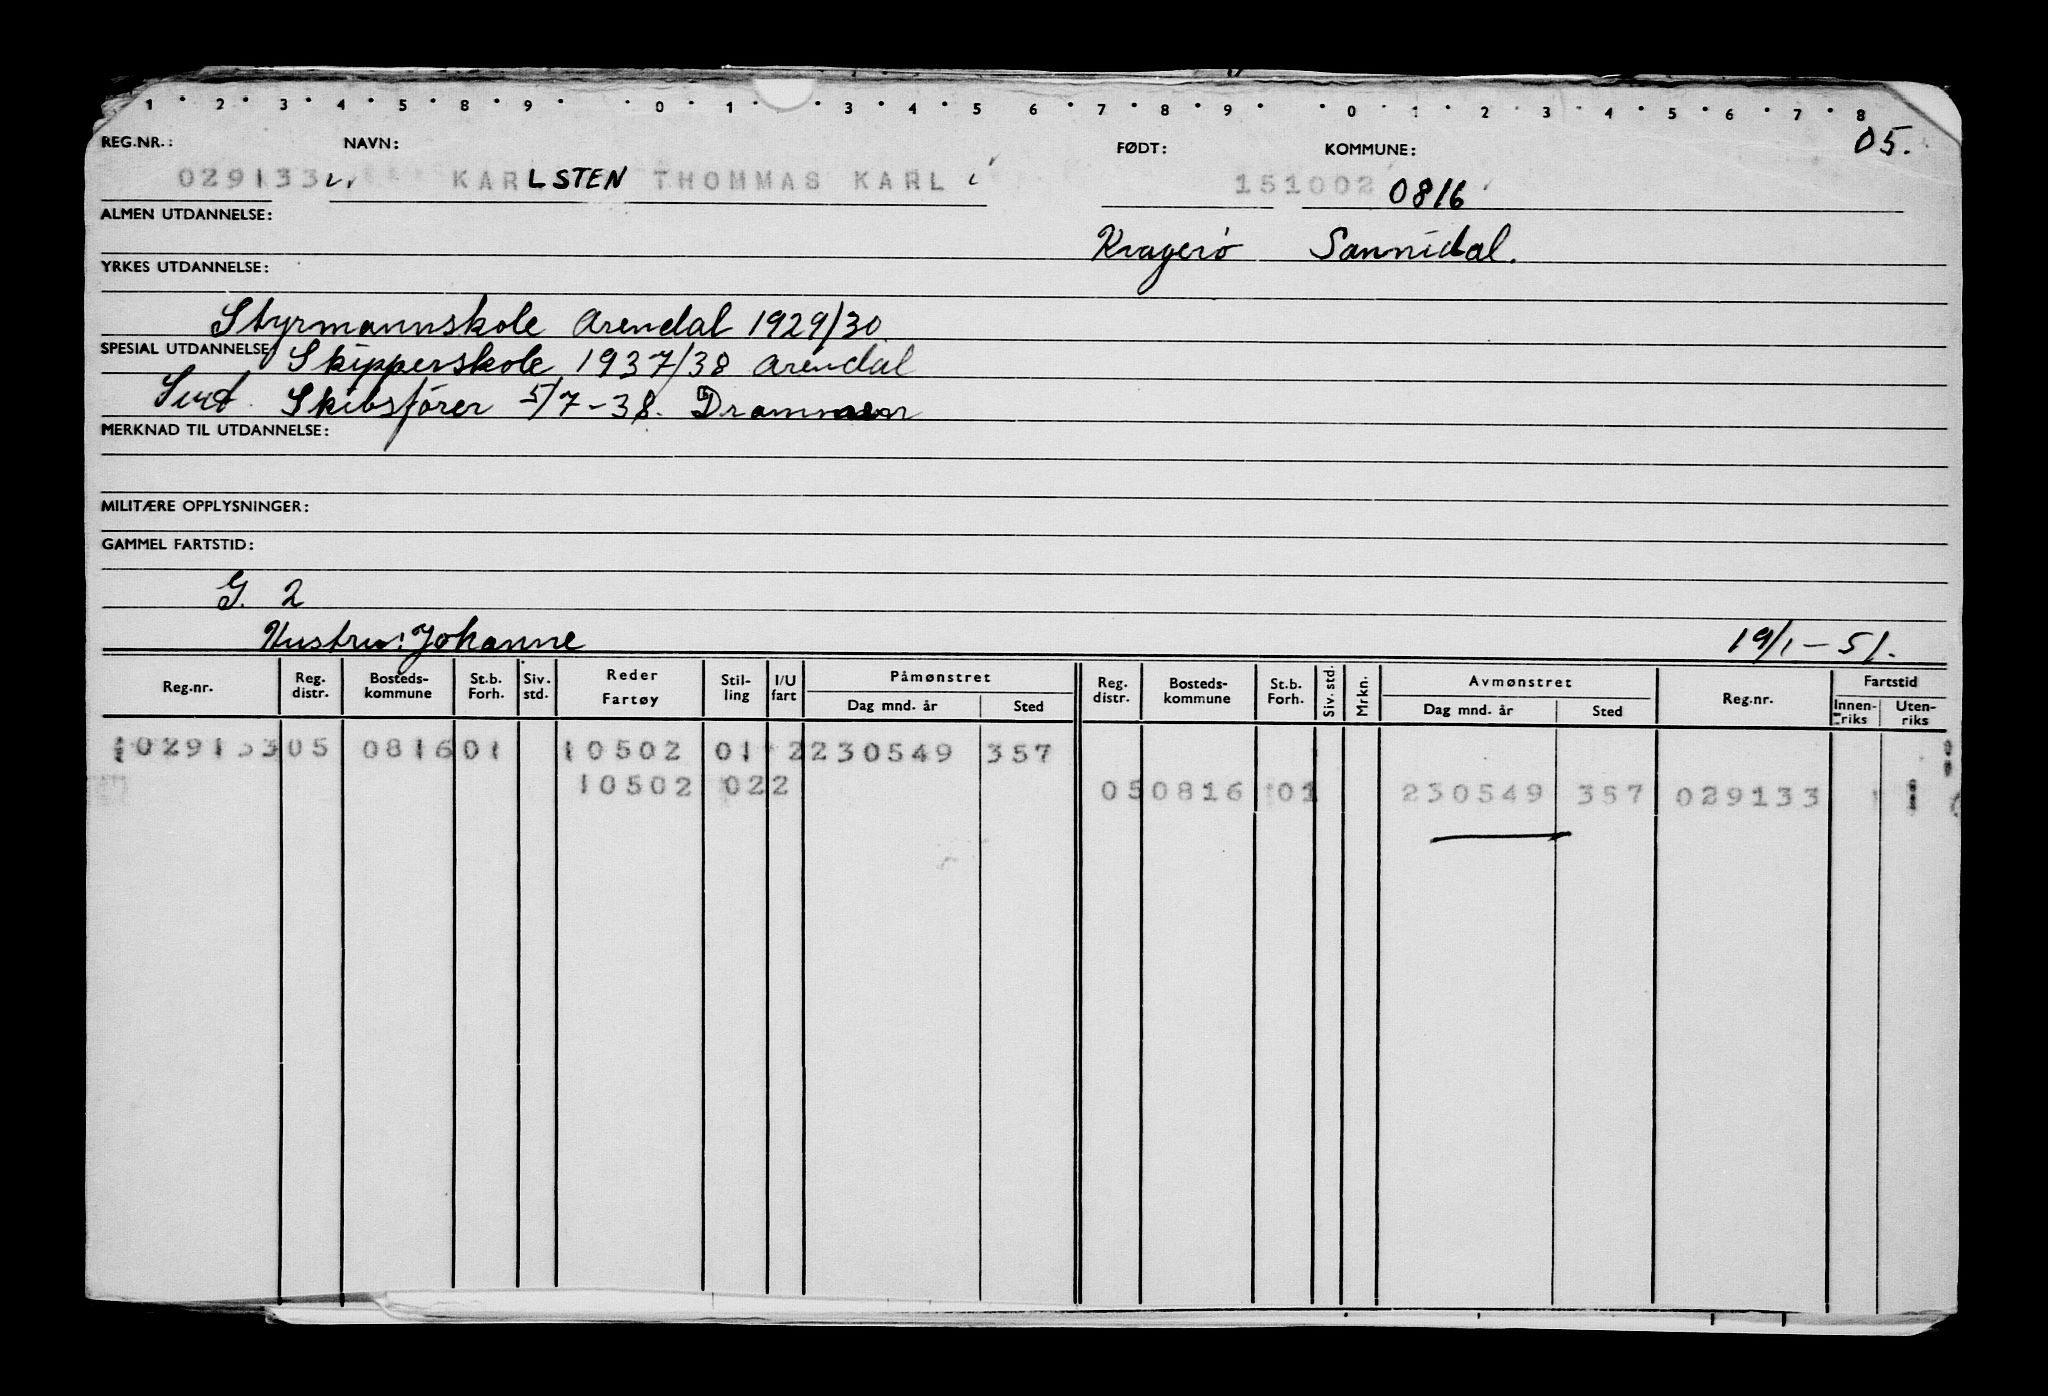 1 2 3 4 5 8 9 0 1 3 4 5 6 7 8 9 0 1 2 3 4 5 6 7 8
05.
REG.NR.: NAVN: FØDT: KOMMUNE:
029133 KARLSTEN THOMMAS KARL 151002 0816
ALMEN UTDANNELSE:
Kragerø Sannidal.
YRKES UTDANNELSE:
Styrmannskole Arendal 1929/30
SPESIAL UTDANNELSE: Skipperskole 1937/38 Arendal
Skibsfører 5/7-38. Drammen
MERKNAD TIL UTDANNELSE:
MILITÆRE OPPLYSNINGER:
GAMMEL FARTSTID:
G. 2
Hustru: Johanne 19/1-51.
Reg.nr. Reg. distr. Bosteds-kommune St.b. Forh. Siv. std. Reder Fartøy Stil-ling I/U fart Påmønstret Dag mnd. år Sted Reg. distr. Bosteds-kommune St.b. Forh. Siv. std. Mrkn. Avmønstret Dag mnd. år Sted Reg.nr. Fartstid Innen-riks Uten-riks
1029133 05 0816 01 10502 01 2 230549 357
10502 02 2 05 0816 01 230549 357 029133 1